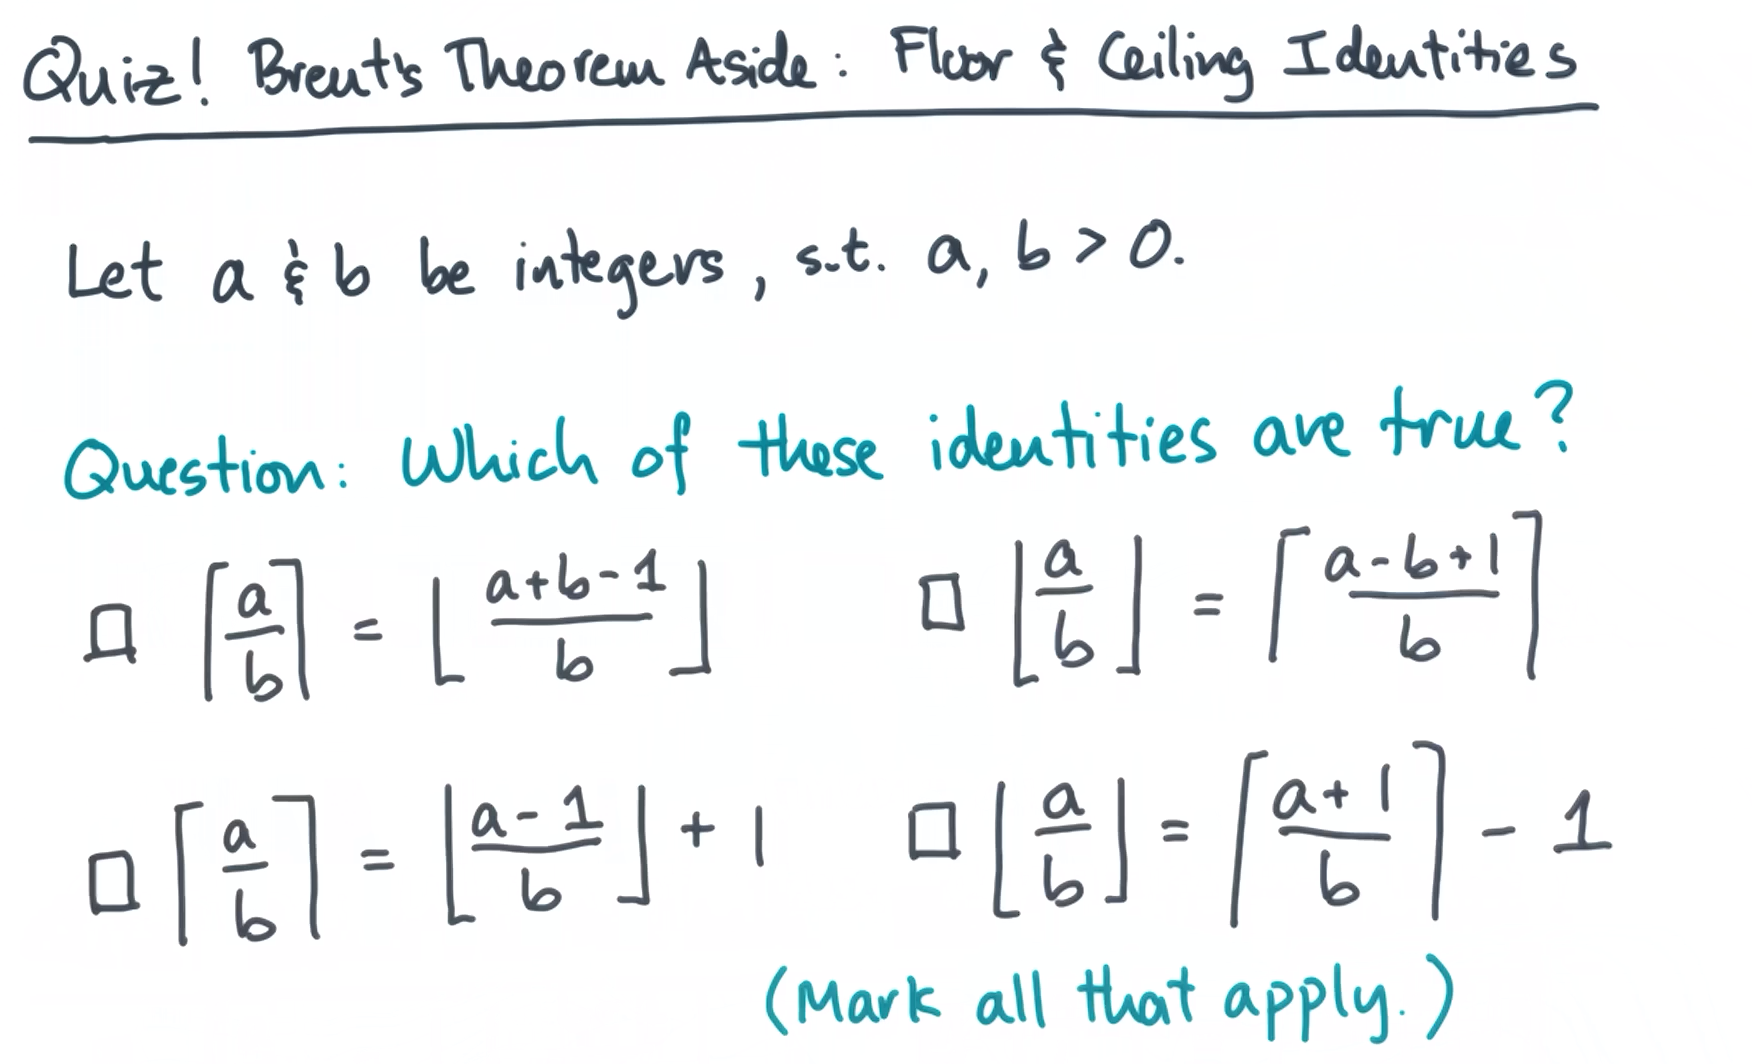 Quiz! Brent's Theorem Aside: Floor & Ceiling Identities
Let a & b be integers, s.t. a, b > 0.
Question: Which of these identities are true?
☐ ⌈a/b⌉ = ⌊(a+b-1)/b⌋ ☐ ⌊a/b⌋ = ⌈(a-b+1)/b⌉
☐ ⌈a/b⌉ = ⌊(a-1)/b⌋ + 1 ☐ ⌊a/b⌋ = ⌈(a+1)/b⌉ - 1
(Mark all that apply.)